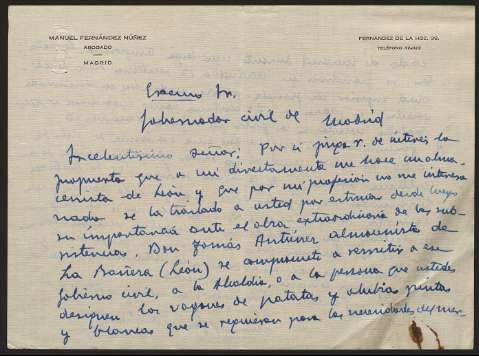 MANUEL FERNÁNDEZ NÚÑEZ
ABOGADO
MADRID
FERNÁNDEZ DE LA HOZ,
TELÉFONO
Excmo Sr.
Gobernador civil de Madrid
Excelentísimo Señor: Por si juzga V. de interés la
propuesta que a mi directamente me hace un alma-
cenista de León y que por mi profesion no me interesa
nada se la traslado a usted por estimar desde luego
su importancia ante el obra extraordinaria de las sub-
sistencias. Don Tomás Antúnez almacenista de
La Bañeza (León) se compromete a remitir a ese
Gobierno civil, a la Alcaldía, o a la persona que ustedes
designen los vagones de patatas y alubias pintas
y blancas que se requieran para las necesidades del mer-